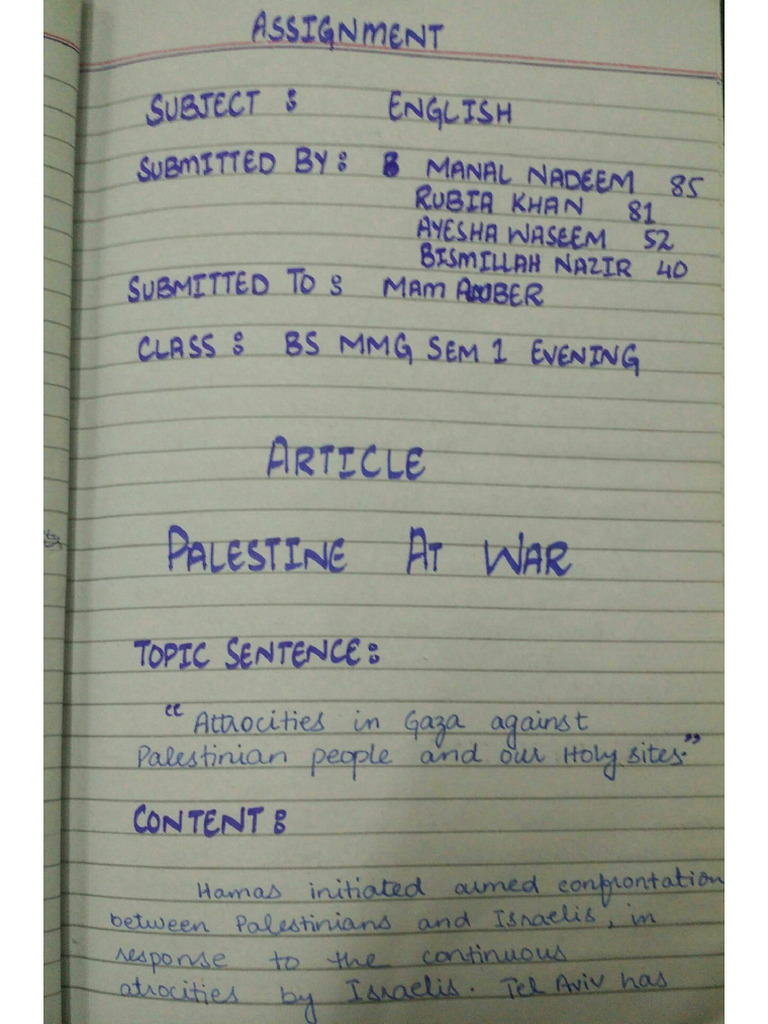 ASSIGNMENT
SUBJECT : ENGLISH
SUBMITTED BY : MANAL NADEEM 85
RUBIA KHAN 81
AYESHA WASEEM 52
BISMILLAH NAZIR 40
SUBMITTED TO : MAM
CLASS : BS MMG SEM 1 EVENING
ARTICLE
PALESTINE AT WAR
TOPIC SENTENCE :
“Attrocities in Gaza against
Palestinian people and our Holy sites.”
CONTENT :
Hamas initiated armed confrontation
between Palestinians and Israelis, in
response to the continuous
atrocities by Israelis. Tel Aviv has